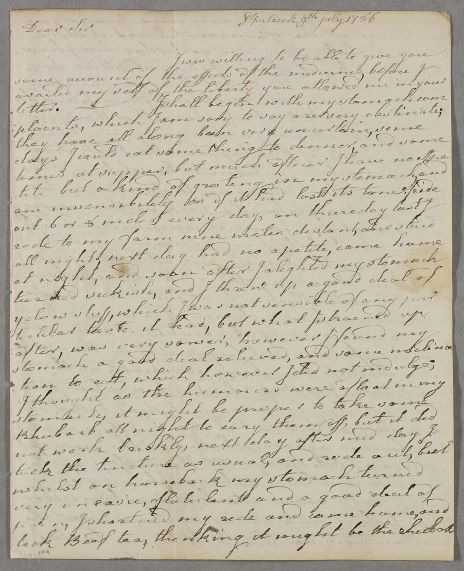 Dear Sir
9th july 1786
I was willing to be able to give you
some account of the effects of the medicines, before I
availed my self of the liberty you allowed me in your
letter. I shall begin with my stomach com
plaints, which I am sorry to say are very obstinate;
they have all along been very uncertain, some
days I could eat something to dinner, and some
times at supper, but much oftner I have no appe
tite but a kind of in my stomach, and
an uneasiness as if it had lost its tone, I ride
out 6 or 8 miles every day, on thursday last I
rode to my farm nine miles distant, and staid
all night, next day had no apetite, came home
at night, and soon after I alighted my stomach
turned sickish, and I threw up a good deal of
yelow stuff, which I was not sensible of any par
ticular taste it had, but what I strained up
after, was very sower, however I found my
stomach a good deal relieved, and some inclina
tion to eat, which however I did not indulge,
I thought as the humours were afloat in my
stomach, it might be proper to take some
Rhubarb all night to cary them off, but it did
not work briskly, next day after mid day I
took the tincture as usual, and rode out, but
whilst on horseback my stomach turned
very uneasie, flatulent and a good deal of
pain, I shortned my ride and came home, and
took Beef tea, thinking it might be the rhubarb